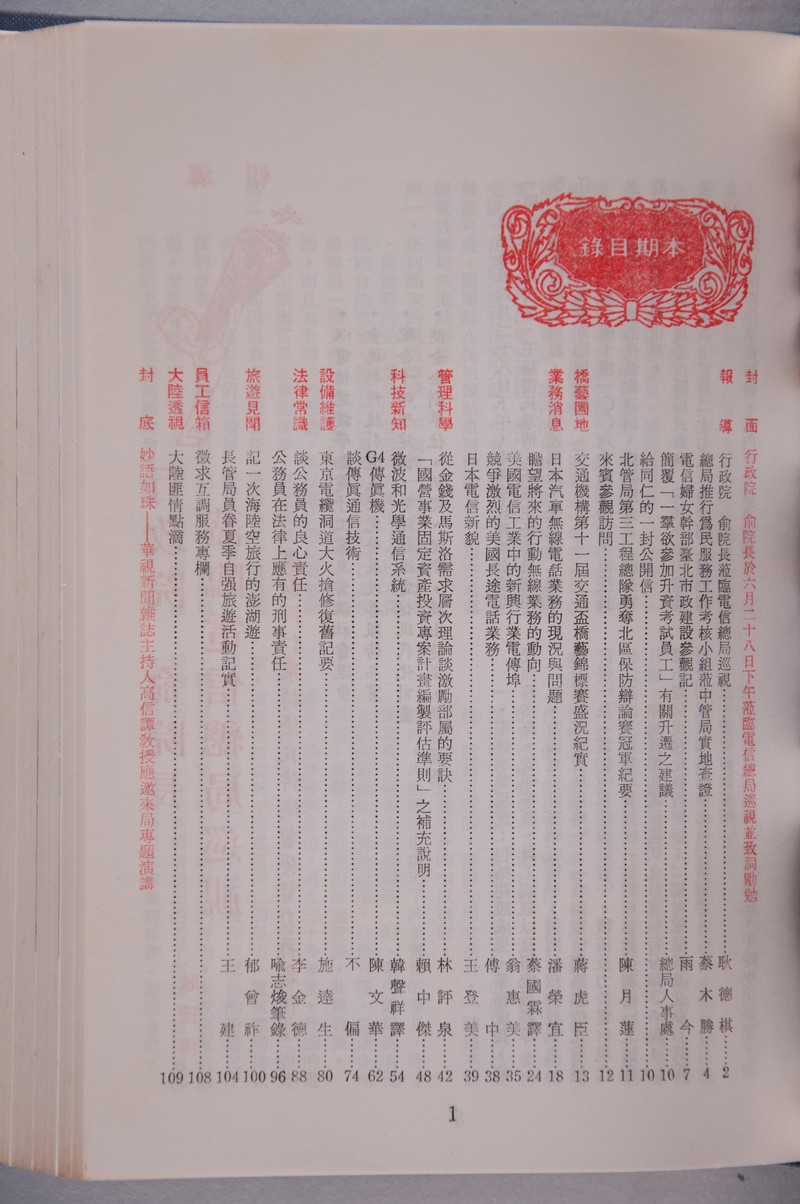 本期目錄
封面 行政院 俞院長於六月二十八日下午蒞臨電信總局巡視並致詞勖勉
報導 行政院 俞院長蒞臨電信總局巡視……耿德棋……2
總局推行為民服務工作考核小組蒞中管局實地查證……蔡木勝……4
電信婦女幹部臺北市政建設參觀記……雨今……7
簡覆「一羣欲參加升資考試員工」有關升遷之建議……總局人事處……10
給同仁的一封公開信……10
北管局第三工程總隊勇奪北區保防辯論賽冠軍紀要……陳月蓮……11
來賓參觀訪問……12
橋藝園地 交通機構第十一屆交通盃橋藝錦標賽盛況紀實……蔣虎臣……13
業務消息 日本汽車無線電話業務的現況與問題……潘榮宜……18
瞻望將來的行動無線業務的動向……蔡國霖譯……24
美國電信工業中的新興行業電傳埠……翁惠美……35
競爭激烈的美國長途電話業務……傅中……38
日本電信新貌……王登美……39
管理科學 從金錢及馬斯洛需求層次理論談激勵部屬的要訣……林評泉……42
「國營事業固定資產投資專案計畫編製評估準則」之補充說明……賴中傑……48
科技新知 微波和光學通信系統……韓聲祥譯……54
G4傳眞機……陳文華……62
談傳眞通信技術……不偏……74
設備維護 東京電纜洞道大火搶修復舊記要……施達生……80
法律常識 談公務員的良心責任……李金德……88
公務員在法律上應有的刑事責任……喩志焌筆錄……96
旅遊見聞 記一次海陸空旅行的澎湖遊……郁曾祚……100
長管局員眷夏季自强旅遊活動記實……王建……104
員工信箱 徵求互調服務專欄……108
大陸透視 大陸匪情點滴……109
封底 妙語如珠——華視新聞雜誌主持人高信譚教授應邀來局專題演講
1